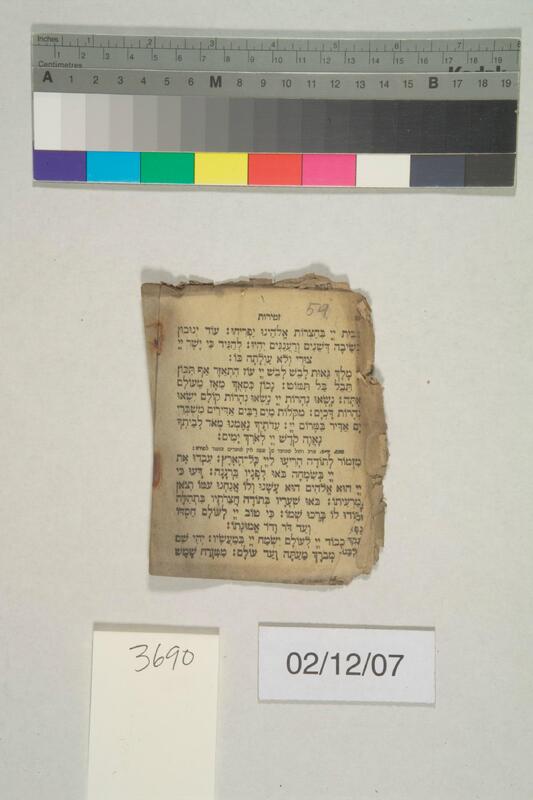 Inches 1 2 3 4 5 6 7 8
1 2 3 4 5 6 7 8 9 10 11 12 13 14 15 16 17 18 19
Centimetres Kodak
A 1 2 3 4 5 6 M 8 9 10 11 12 13 14 15 B 17 18 19
זמירות 59
בבית יְיָ בְּחַצְרוֹת אֱלֹהֵינוּ יַפְרִיחוּ: עוֹד יְנוּבוּן
בְּשֵׂיבָה דְּשֵׁנִים וְרַעֲנַנִּים יִהְיוּ: לְהַגִּיד כִּי יָשָׁר יְיָ
צוּרִי וְלֹא עַוְלָתָה בּוֹ:
מָלָךְ גֵּאוּת לָבֵשׁ לָבֵשׁ יְיָ עֹז הִתְאַזָּר אַף תִּכּוֹן
תֵּבֵל בַּל תִּמּוֹט: נָכוֹן כִּסְאֲךָ מֵאָז מֵעוֹלָם
אָתָּה: נָשְׂאוּ נְהָרוֹת יְיָ נָשְׂאוּ נְהָרוֹת קוֹלָם יִשְׂאוּ
נְהָרוֹת דָּכְיָם: מִקֹּלוֹת מַיִם רַבִּים אַדִּירִים מִשְׁבְּרֵי
יָם אַדִּיר בַּמָּרוֹם יְיָ: עֵדֹתֶיךָ נֶאֶמְנוּ מְאֹד לְבֵיתְךָ
נָאֲוָה קֹדֶשׁ יְיָ לְאֹרֶךְ יָמִים:
מִזְמוֹר לְתוֹדָה הָרִיעוּ לַיְיָ כָּל־הָאָרֶץ: עִבְדוּ אֶת
יְיָ בְּשִׂמְחָה בֹּאוּ לְפָנָיו בִּרְנָנָה: דְּעוּ כִּי
יְיָ הוּא אֱלֹהִים הוּא עָשָׂנוּ וְלוֹ אֲנַחְנוּ עַמּוֹ וְצֹאן
מַרְעִיתוֹ: בֹּאוּ שְׁעָרָיו בְּתוֹדָה חֲצֵרֹתָיו בִּתְהִלָּה
הוֹדוּ לוֹ בָּרְכוּ שְׁמוֹ: כִּי טוֹב יְיָ לְעוֹלָם חַסְדּוֹ
וְעַד דֹּר וָדֹר אֱמוּנָתוֹ:
כְבוֹד יְיָ לְעוֹלָם יִשְׂמַח יְיָ בְּמַעֲשָׂיו: יְהִי שֵׁם
מְבֹרָךְ מֵעַתָּה וְעַד עוֹלָם: מִמִּזְרַח שֶׁמֶשׁ
3690
02/12/07